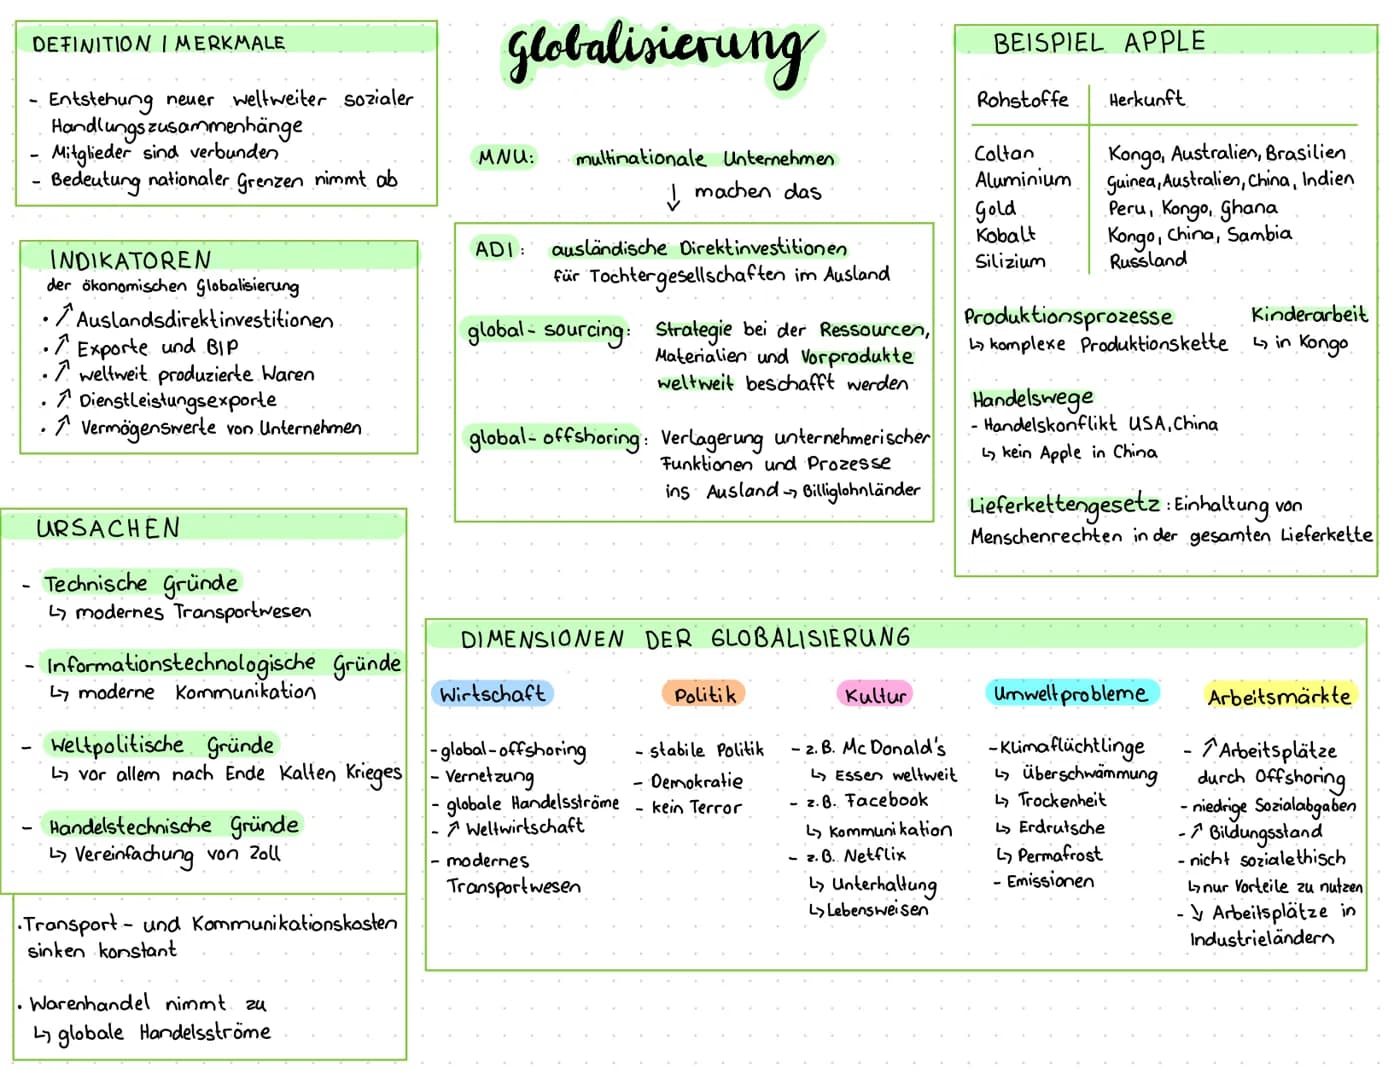 Globalisierung
DEFINITION | MERKMALE
- Entstehung neuer weltweiter sozialer
Handlungszusammenhänge
- Mitglieder sind verbunden
- Bedeutung nationaler Grenzen nimmt ab
INDIKATOREN
der ökonomischen Globalisierung
• ↗ Auslandsdirektinvestitionen
• ↗ Exporte und BIP
• ↗ weltweit produzierte Waren
• ↗ Dienstleistungsexporte
• ↗ Vermögenswerte von Unternehmen
URSACHEN
- Technische Gründe
↳ modernes Transportwesen
- Informationstechnologische Gründe
↳ moderne Kommunikation
- Weltpolitische Gründe
↳ vor allem nach Ende Kalten Krieges
- Handelstechnische Gründe
↳ Vereinfachung von Zoll
• Transport- und Kommunikationskosten
sinken konstant
• Warenhandel nimmt zu
↳ globale Handelsströme
MNU: multinationale Unternehmen
↓ machen das
ADI: ausländische Direktinvestitionen
für Tochtergesellschaften im Ausland
global-sourcing: Strategie bei der Ressourcen,
Materialien und Vorprodukte
weltweit beschafft werden
global-offshoring: Verlagerung unternehmerischer
Funktionen und Prozesse
ins Ausland → Billiglohnländer
BEISPIEL APPLE
Rohstoffe Herkunft
Coltan Kongo, Australien, Brasilien
Aluminium Guinea, Australien, China, Indien
Gold Peru, Kongo, Ghana
Kobalt Kongo, China, Sambia
Silizium Russland
Produktionsprozesse Kinderarbeit
↳ komplexe Produktionskette ↳ in Kongo
Handelswege
- Handelskonflikt USA, China
↳ kein Apple in China
Lieferkettengesetz: Einhaltung von
Menschenrechten in der gesamten Lieferkette
DIMENSIONEN DER GLOBALISIERUNG
Wirtschaft
- global-offshoring
- Vernetzung
- globale Handelsströme
- ↗ Weltwirtschaft
- modernes
Transportwesen
Politik
- stabile Politik
- Demokratie
- kein Terror
Kultur
- z.B. McDonald's
↳ Essen weltweit
- z.B. Facebook
↳ Kommunikation
- z.B. Netflix
↳ Unterhaltung
↳ Lebensweisen
Umweltprobleme
- Klimaflüchtlinge
↳ Überschwämmung
↳ Trockenheit
↳ Erdrutsche
↳ Permafrost
- Emissionen
Arbeitsmärkte
- ↗ Arbeitsplätze
durch Offshoring
- niedrige Sozialabgaben
- ↗ Bildungsstand
- nicht sozialethisch
↳ nur Vorteile zu nutzen
- ↘ Arbeitsplätze in
Industrieländern